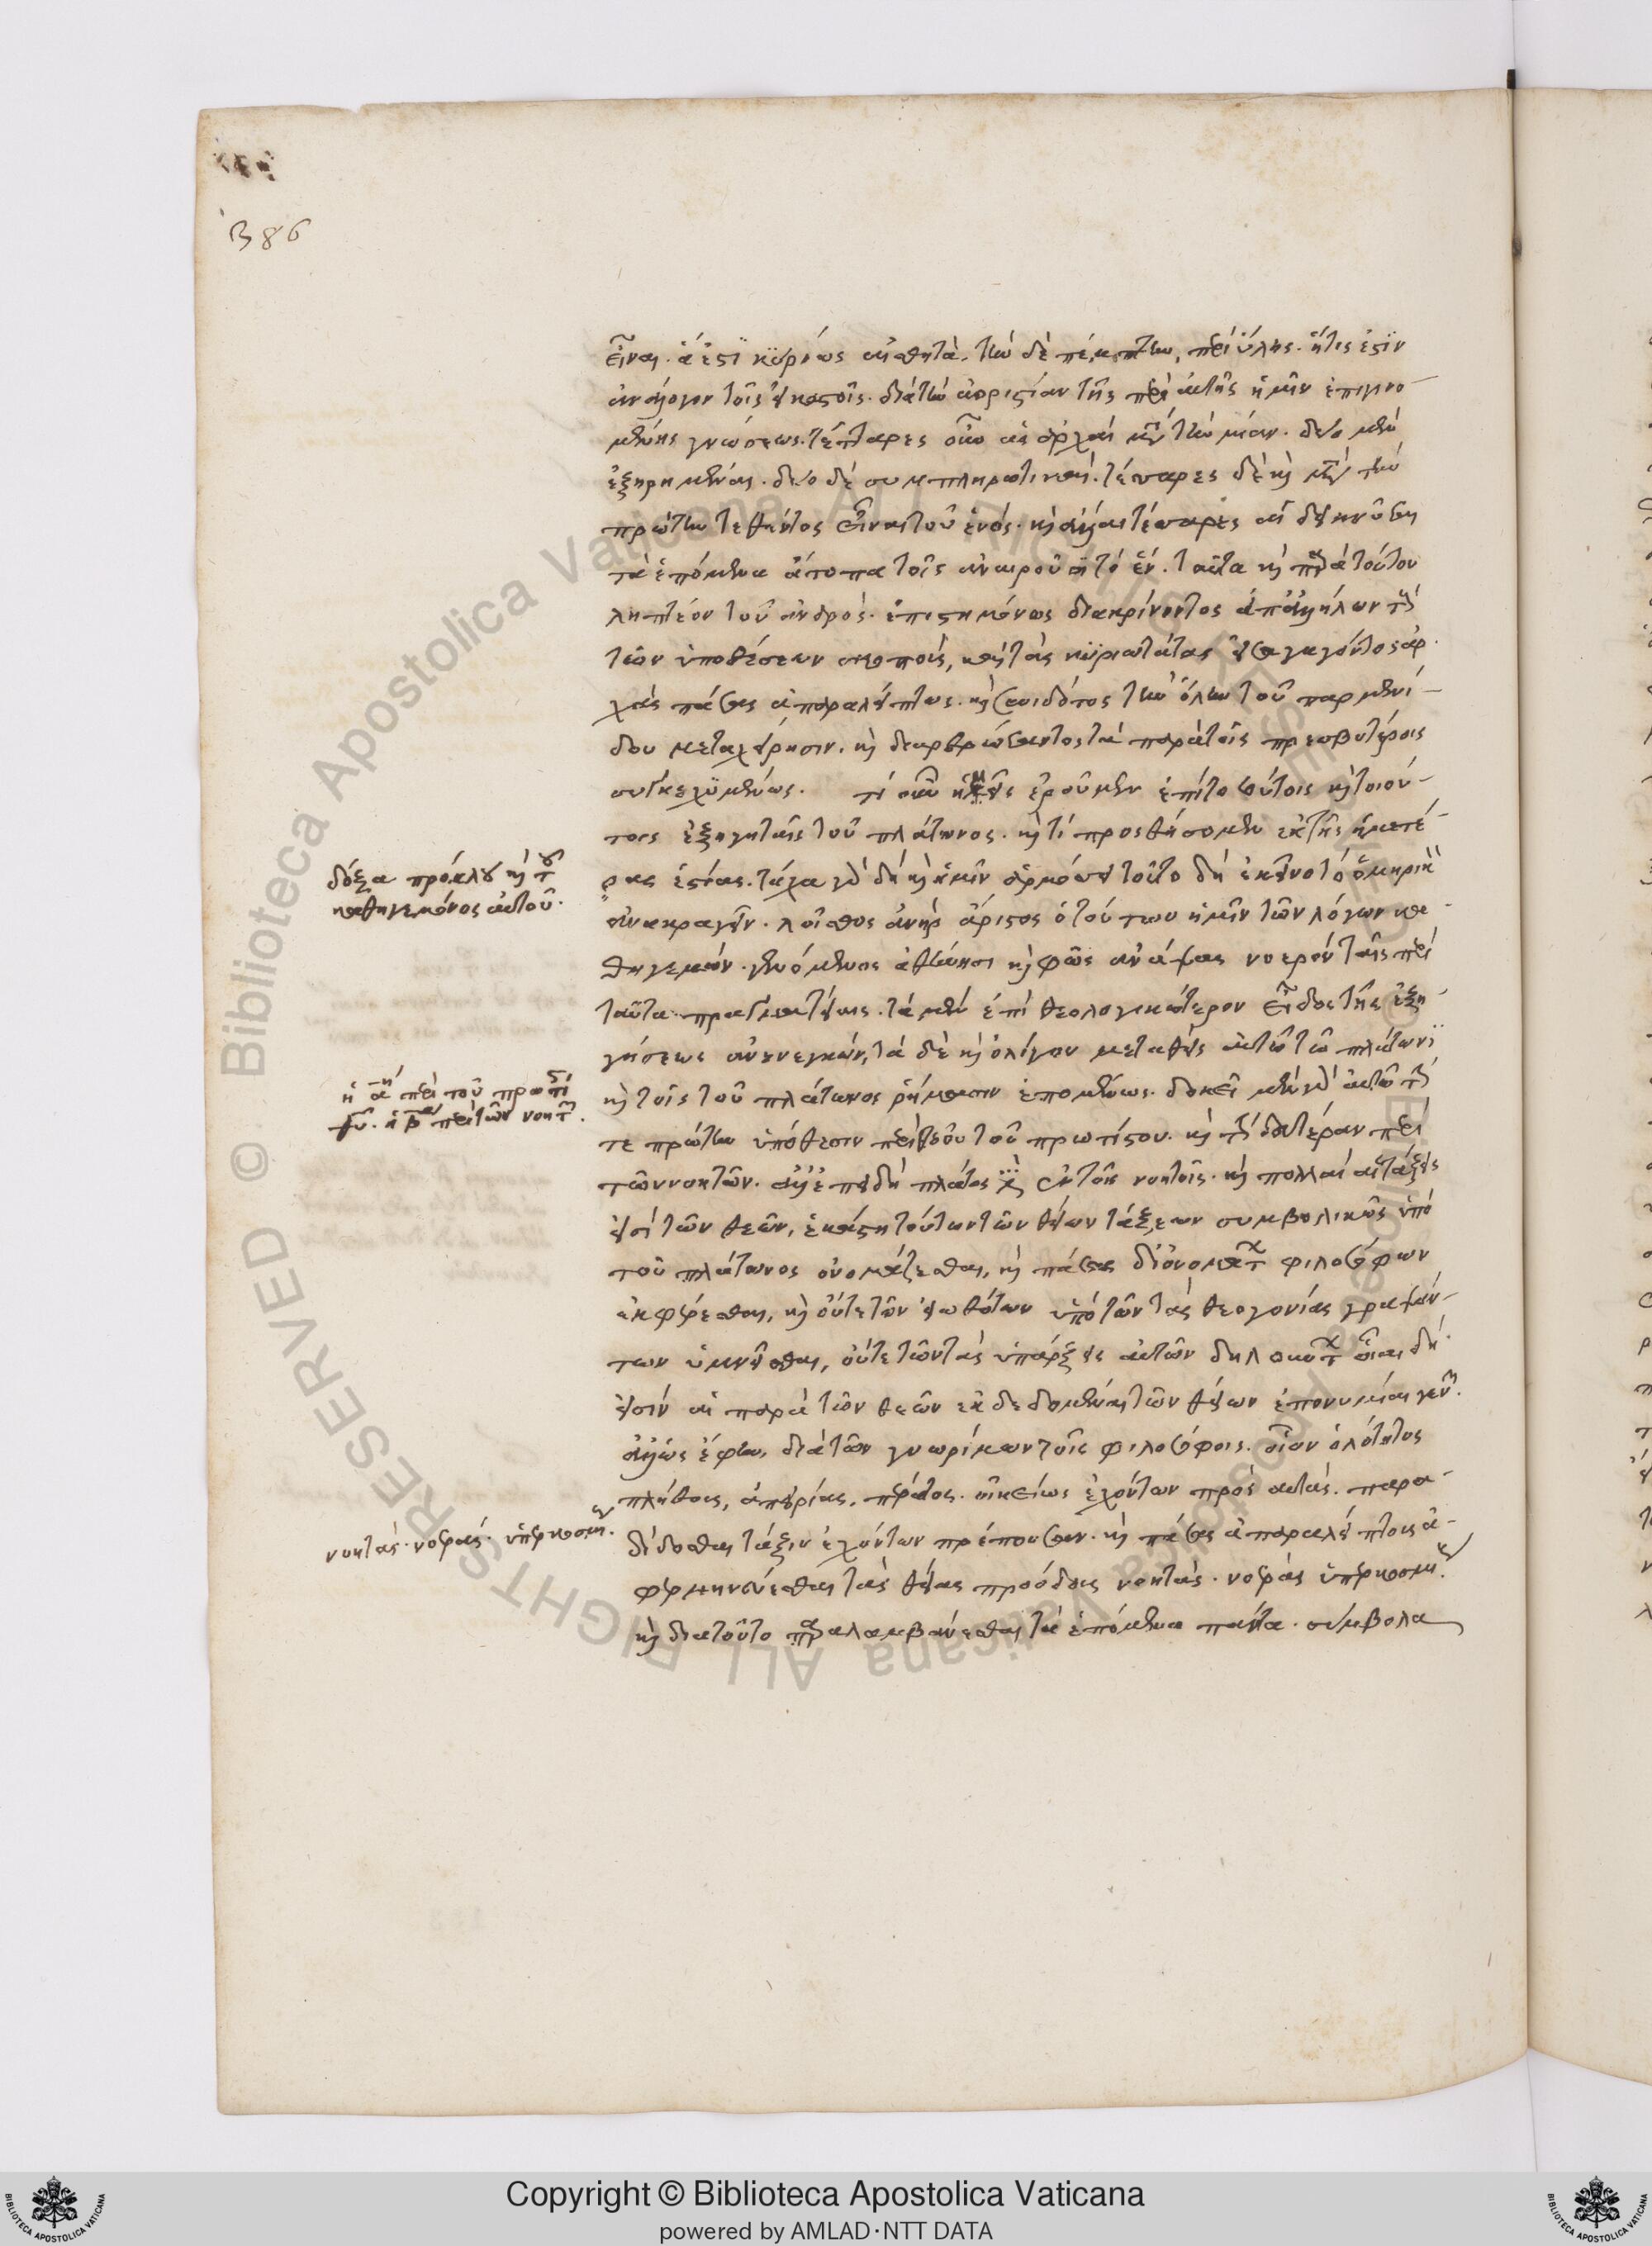 386
εἶναι. ἅ ἐστϊ κϋρίως αἰσθητὰ. τὴν δὲ πέμπτην, περὶ ὕλης. ἥτις ἐστὶν
ἀνάλογον τοῖς εἰκοστοῖς. διὰ τὴν ἀοριστίαν τῆς περὶ αὐτῆς ἡμῖν ἐπιγινο-
μένης γνώσεως. τέτταρες οὖν αἱ ἀρχαὶ μετὰ τὴν μίαν. δύο μὲν
ἐξηρημέναι. δύο δὲ συμπληρωτικαί. τέσσαρες δὲ καὶ μετὰ τὴν
πρώτην τεθέντος εἶναι τοῦ ἑνός. καὶ ἄλλαι τέσσαρες αἱ δεικνῦσαι
τὰ ἑπόμενα ἄτοπα τοῖς ἀναιροῦσι τὸ ἕν. ταῦτα καὶ παρὰ τούτου
ληπτέον τοῦ ἀνδρὸς. ἐπιστημόνως διακρίνοντος ἀπ' ἀλλήλων τοὺς
τῶν ὑποθέσεων σκοποὺς, καὶ τὰς κϋριωτάτας εἰσαγαγόντος ἀρ-
χὰς πάσας ἀπαραλείπτως. καὶ συνιδόντος τὴν ὅλην τοῦ παρμενί-
δου μεταχείρησιν. καὶ διαρθρώσαντος τὰ παρὰ τοῖς πρεσβυτέροις
συγκεχϋμένως. τί οὖν ἡμεῖς ἐροῦμεν ἐπὶ τοσούτοις καὶ τοιού-
τοις ἐξηγηταῖς τοῦ πλάτωνος. καὶ τί προσθήσομεν ἐκ τῆς ἡμετέ-
ρας ἑστίας. τάχα γὰρ δὴ καὶ ἡμῖν ἁρμόσει τοῦτο δὴ ἐκεῖνο τὸ ὁμηρικὸν
ἀνακραγεῖν. λοῖσθος ἀνὴρ ἄριστος ὁ τούτων ἡμῖν τῶν λόγων κα-
θηγεμών. γενόμενος ἀθήνησι καὶ φῶς ἀνάψας νοερὸν ταῖς περὶ
ταῦτα πραγματείαις. τὰ μὲν ἐπὶ θεολογικώτερον εἶδος τῆς ἐξη-
γήσεως ἀνενεγκών, τὰ δὲ καὶ ὀλίγον μεταθεὶς αὐτῶ τῶ πλάτωνϊ
καὶ τοῖς τοῦ πλάτωνος ῥήμασιν ἑπομένως. δοκεῖ μὲν γὰρ αὐτῶ τήν
τε πρώτην ὑπόθεσιν περὶ θεοῦ τοῦ πρωτίστου. καὶ τὴν δευτέραν περὶ
τῶν νοητῶν. ἀλλ' ἐπειδὴ πλάτος ἐστὶ καὶ ἐν τοῖς νοητοῖς. καὶ πολλαὶ αἱ τάξεις
εἰσὶ τῶν θεῶν, ἑκάστη τούτων τῶν θείων τάξεων συμβολικῶς ὑπὸ
τοῦ πλάτωνος ὀνομάζεσθαι, καὶ πάσας δι' ὀνομάτων φιλοσόφων
ἐκφέρεσθαι, καὶ οὔτε τῶν εἰωθότων ὑπὸ τῶν τὰς θεογονίας γραψάν-
των ὑμνεῖσθαι, οὔτε τῶν τὰς ὑπάρξεις αὐτῶν δηλούντων οἷαι δή
εἰσίν αἱ παρὰ τῶν θεῶν ἐκδεδομέναι τῶν θείων ἐπονυμίαι γενῶν.
ἀλλ' ὡς ἔφην, διὰ τῶν γνωρίμων τοῖς φιλοσόφοις. οἷον ὁλότητος
πλήθους, ἀπειρίας, πέρατος. οἰκείως ἐχόντων πρὸς αὐτὰς. παρα-
δίδοσθαι τάξιν ἐχόντων πρέπουσαν. καὶ πάσας ἀπαραλείπτους ἀ-
φερμηνεύεσθαι τὰς θείας προόδους νοητὰς. νοερὰς ὑπερκοσμίους.
καὶ διὰ τοῦτο παραλαμβάνεσθαι τὰ ἑπόμενα πάντα. σύμβολα
δόξα πρόκλου καὶ τοῦ
καθηγεμόνος αὐτοῦ.
ἡ α περὶ τοῦ πρωτίστου
θεοῦ. ἡ β περὶ τῶν νοητῶν.
νοητὰς. νοερὰς. ὑπερκοσμίους.
Copyright © Biblioteca Apostolica Vaticana
powered by AMLAD·NTT DATA